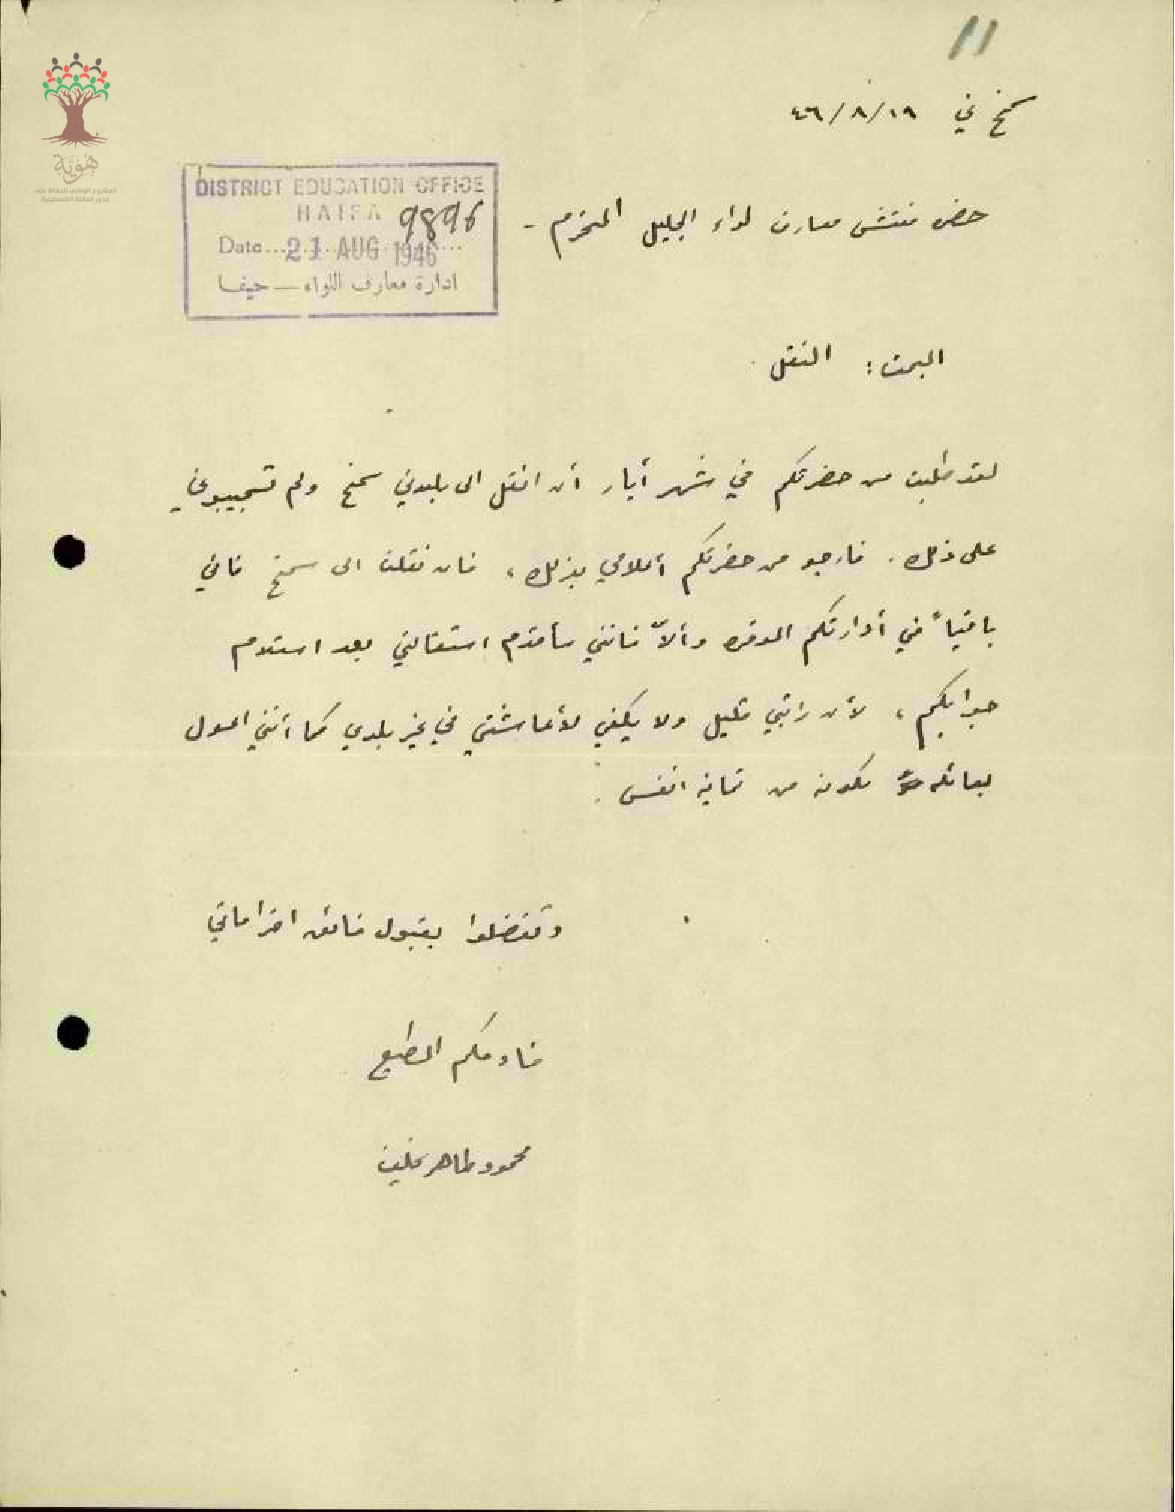 11
سمخ في ١٩/٨/٤٦
هوية
المشروع الوطني للحفاظ على
جذور العائلة الفلسطينية
DISTRICT EDUCATION OFFICE
HAIFA 9896
Date 21 AUG 1946
ادارة معارف اللواء — حيفا
حضرة مفتش معارف لواء الجليل المحترم -
البحث : النقل .
لقد طلبت من حضرتكم في شهر أيار أن انقل الى بلدتي سمخ ولم تجيبوني
على ذلك . فارجو من حضرتكم أعلامي بذلك ، فان نقلت الى سمخ فاني
باقياً في أدارتكم الموقرة وألاّ فانني سأقدم استقالتي بعد استلام
جوابكم ، لأن راتبي قليل ولا يكفي لأعاشتي في غير بلدي كما أنني اعول
بعائلة مكونة من ثمانية انفس .
وتفضلوا بقبول فائق احتراماتي
خادمكم المطيع
محمود طاهر